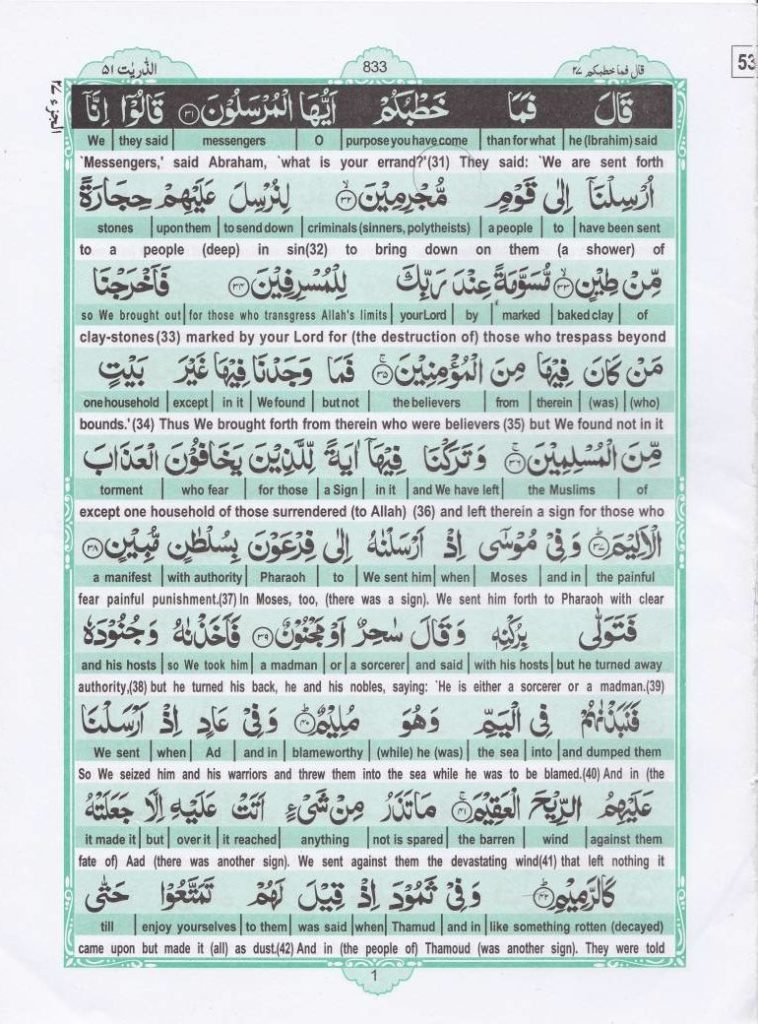 قال فما خطبكم ٢٧
833
الذّٰريٰت ٥١
53
قَالَ فَمَا خَطْبُكُمْ اَيُّهَا الْمُرْسَلُوْنَ ﴿٣١﴾ قَالُوْٓا اِنَّآ
We | they said | messengers | O | purpose you have come | than for what | he (Ibrahim) said
`Messengers,' said Abraham, `what is your errand?'(31) They said: `We are sent forth
اُرْسِلْنَآ اِلٰى قَوْمٍ مُّجْرِمِيْنَ ﴿٣٢﴾ لِنُرْسِلَ عَلَيْهِمْ حِجَارَةً
stones | upon them | to send down | criminals (sinners, polytheists) | a people | to | have been sent
to a people (deep) in sin(32) to bring down on them (a shower) of
مِّنْ طِيْنٍ ﴿٣٣﴾ مُّسَوَّمَةً عِنْدَ رَبِّكَ لِلْمُسْرِفِيْنَ ﴿٣٤﴾ فَاَخْرَجْنَا
so We brought out | for those who transgress Allah's limits | your Lord | by | marked | baked clay | of
clay-stones(33) marked by your Lord for (the destruction of) those who trespass beyond
مَنْ كَانَ فِيْهَا مِنَ الْمُؤْمِنِيْنَ ﴿٣٥﴾ فَمَا وَجَدْنَا فِيْهَا غَيْرَ بَيْتٍ
one household | except | in it | We found | but not | the believers | from | therein | (was) | (who)
bounds.'(34) Thus We brought forth from therein who were believers (35) but We found not in it
مِّنَ الْمُسْلِمِيْنَ ﴿٣٦﴾ وَتَرَكْنَا فِيْهَآ اٰيَةً لِّلَّذِيْنَ يَخَافُوْنَ الْعَذَابَ
torment | who fear | for those | a Sign | in it | and We have left | the Muslims | of
except one household of those surrendered (to Allah) (36) and left therein a sign for those who
الْاَلِيْمَ ﴿٣٧﴾ وَفِيْ مُوْسٰٓى اِذْ اَرْسَلْنٰهُ اِلٰى فِرْعَوْنَ بِسُلْطٰنٍ مُّبِيْنٍ ﴿٣٨﴾
a manifest | with authority | Pharaoh | to | We sent him | when | Moses | and in | the painful
fear painful punishment.(37) In Moses, too, (there was a sign). We sent him forth to Pharaoh with clear
فَتَوَلّٰى بِرُكْنِهٖ وَقَالَ سٰحِرٌ اَوْ مَجْنُوْنٌ ﴿٣٩﴾ فَاَخَذْنٰهُ وَجُنُوْدَهٗ
and his hosts | so We took him | a madman | or | a sorcerer | and said | with his hosts | but he turned away
authority,(38) but he turned his back, he and his nobles, saying: `He is either a sorcerer or a madman.(39)
فَنَبَذْنٰهُمْ فِى الْيَمِّ وَهُوَ مُلِيْمٌ ﴿٤٠﴾ وَفِيْ عَادٍ اِذْ اَرْسَلْنَا
We sent | when | Ad | and in | blameworthy | (while) he (was) | the sea | into | and dumped them
So We seized him and his warriors and threw them into the sea while he was to be blamed.(40) And in (the
عَلَيْهِمُ الرِّيْحَ الْعَقِيْمَ ﴿٤١﴾ مَا تَذَرُ مِنْ شَيْءٍ اَتَتْ عَلَيْهِ اِلَّا جَعَلَتْهُ
it made it | but | over it | it reached | anything | not is spared | the barren | wind | against them
fate of) Aad (there was another sign). We sent against them the devastating wind(41) that left nothing it
كَالرَّمِيْمِ ﴿٤٢﴾ وَفِيْ ثَمُوْدَ اِذْ قِيْلَ لَهُمْ تَمَتَّعُوْا حَتّٰى
till | enjoy yourselves | to them | was said | when | Thamud | and in | like something rotten (decayed)
came upon but made it (all) as dust.(42) And in (the people of) Thamoud (was another sign). They were told
1